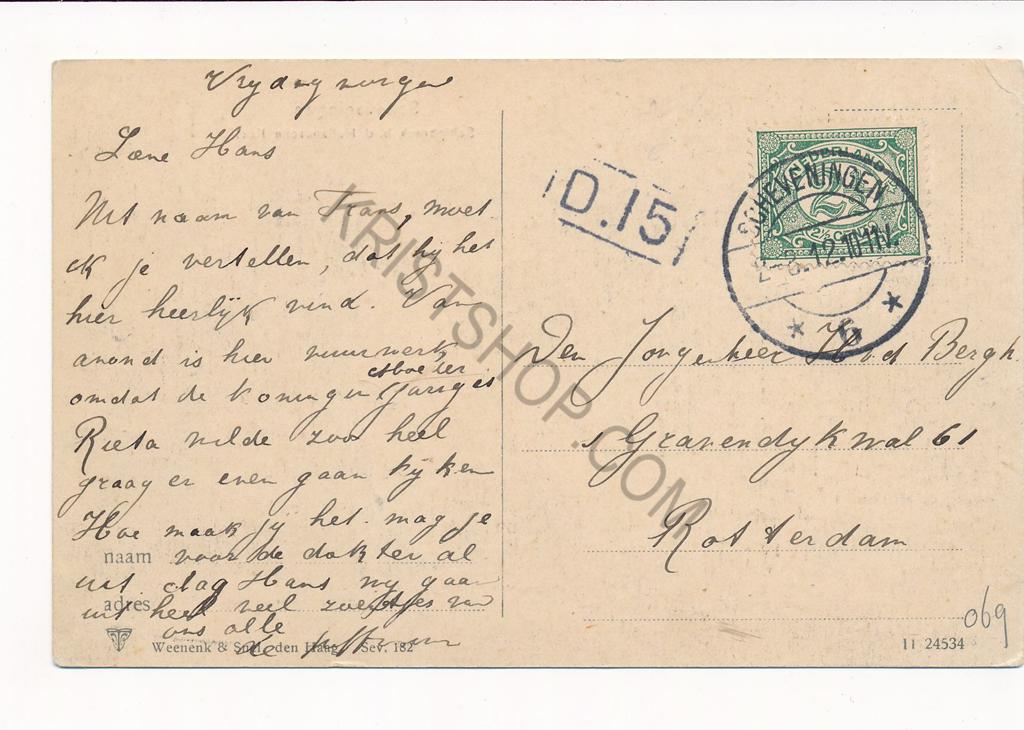 Vrydag morgen
Lieve Hans
Uit naam van Frans, moet
ik je vertellen, dat hij het
hier heerlijk vind. Van
avond is hier vuurwerk
omdat de koningin Moeder jarig is
Rieta wilde zoo heel
graag er even gaan kijken
Hoe maak jij het. mag je
voor de dokter al
uit dag Hans wij gaan
uit heel veel zoentjes van
ons alle
naam
adres
Weenenk & Snel, den Haag Sev. 182
D.15
NEDERLAND
2½
SCHEVENINGEN
2. 8. 12. 10-11V.
* 6 *
Den Jongenheer H v d Bergh.
s Gravendykwal 61
Rotterdam
069
11 24534
KRISTSHOP.COM